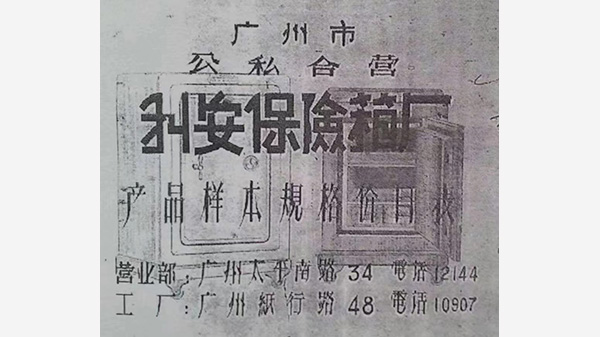 广州市
公私合营
利安保險箱厂
产品样本规格价目表
营业部:广州太平南路34 電话12144
工厂:广州紙行路48 電话10907